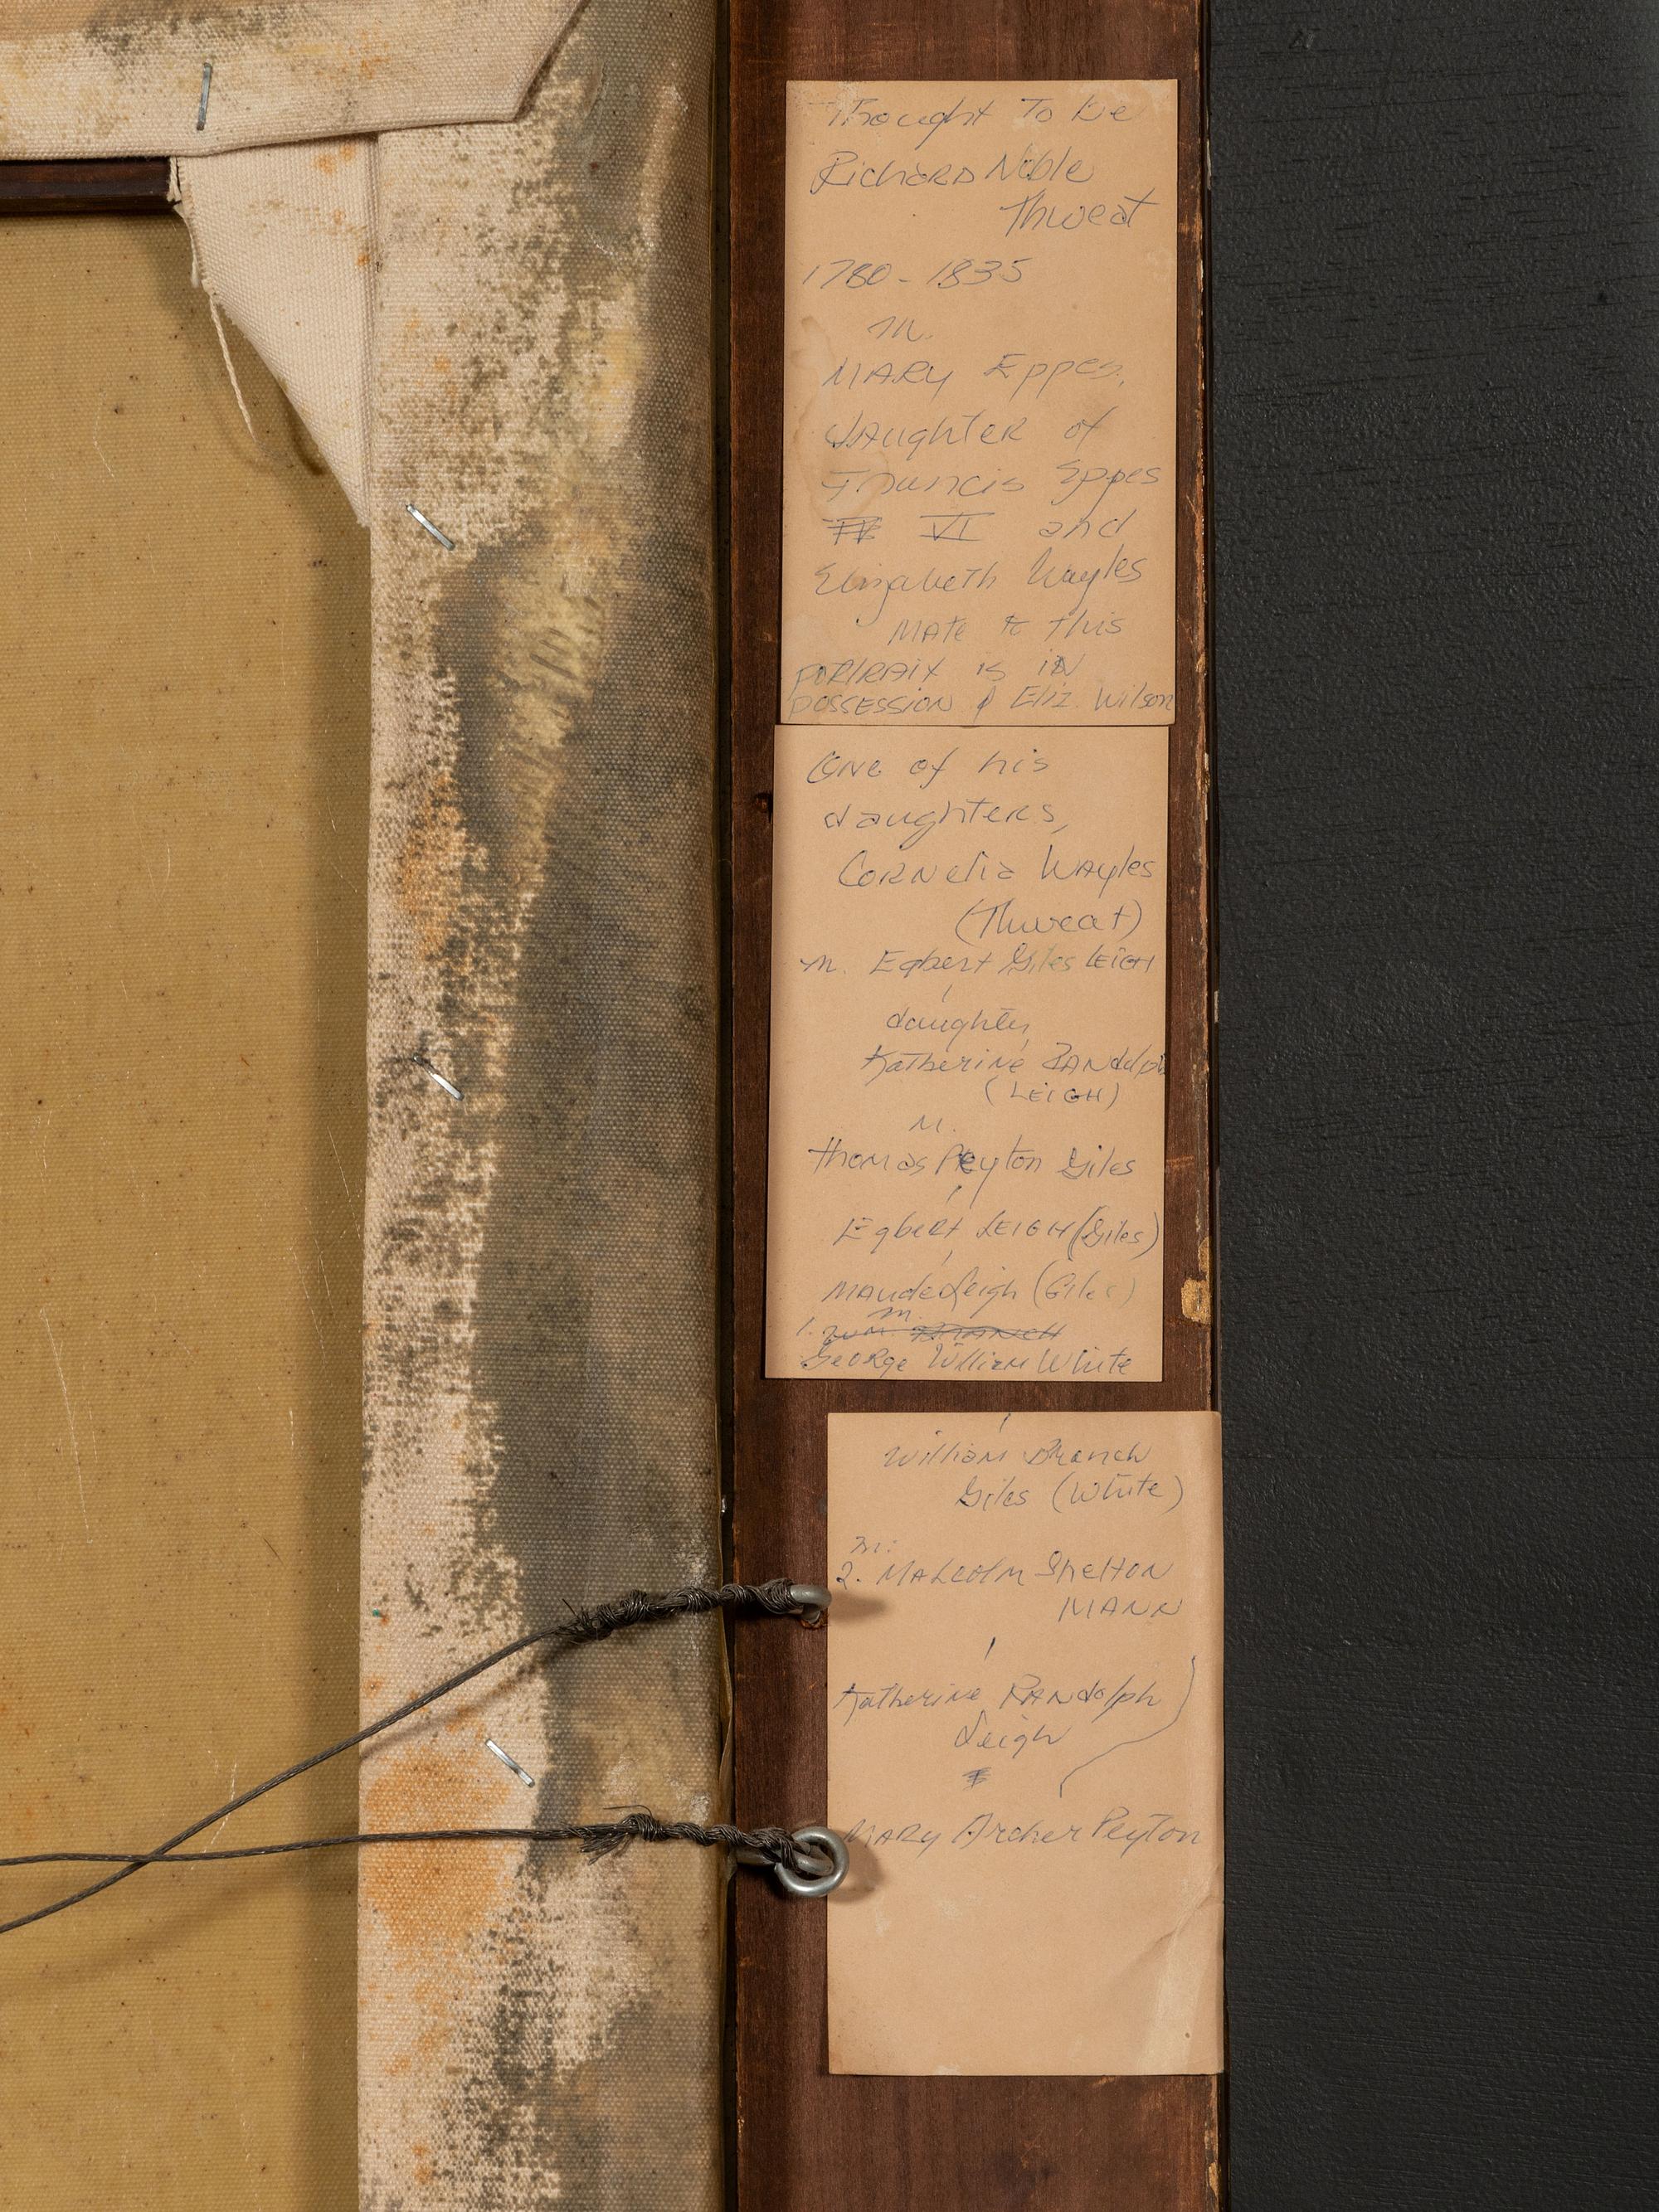 Thought To be
Richard Noble
Thweat
1780-1835
m.
MARY Eppes,
daughter of
Francis Eppes
IV VI and
Elizabeth Wayles
MATE to this
PORTRAIT is iN
POSSESSION of Eliz. Wilson
One of his
daughters,
CORNelia WAyles
(Thweat)
m. Egbert Giles LEIGH
daughter,
Katherine RANdolph
(LEIGH)
M.
Thomas Peyton Giles
Egbert LEIGH (Giles)
Maude Leigh (Giles)
m.
1.
George William White
William Branch
Giles (White)
m:
2. MALcolm Shelton
MANN
Katherine RANdolph
Leigh
MARy Archer Peyton